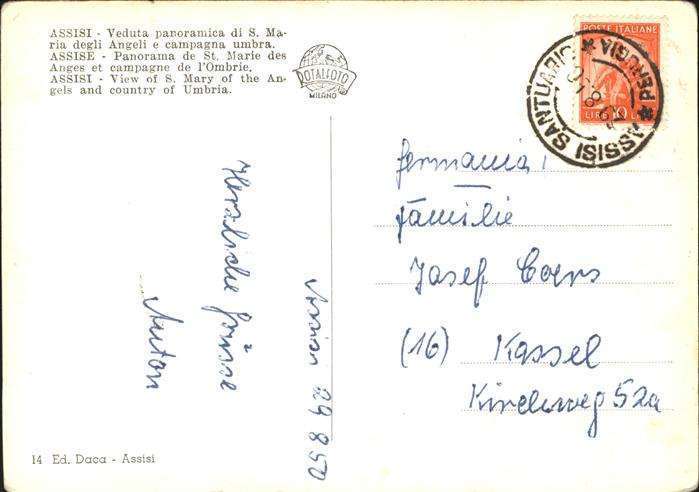 ASSISI - Veduta panoramica di S. Ma-
ria degli Angeli e campagna umbra.
ASSISE - Panorama de St. Marie des
Anges et campagne de l'Ombrie.
ASSISI - View of S. Mary of the An-
gels and country of Umbria.
ROTALFOTO
MILANO
POSTE ITALIANE
LIRE 10
ASSISI SANTUARIO
PERUGIA
Germania
Familie
Josef Coers
(16) Kassel
Kirchweg 52a
Herzliche Grüsse
Anton
Assisi 29 8 50
14 Ed. Daca - Assisi